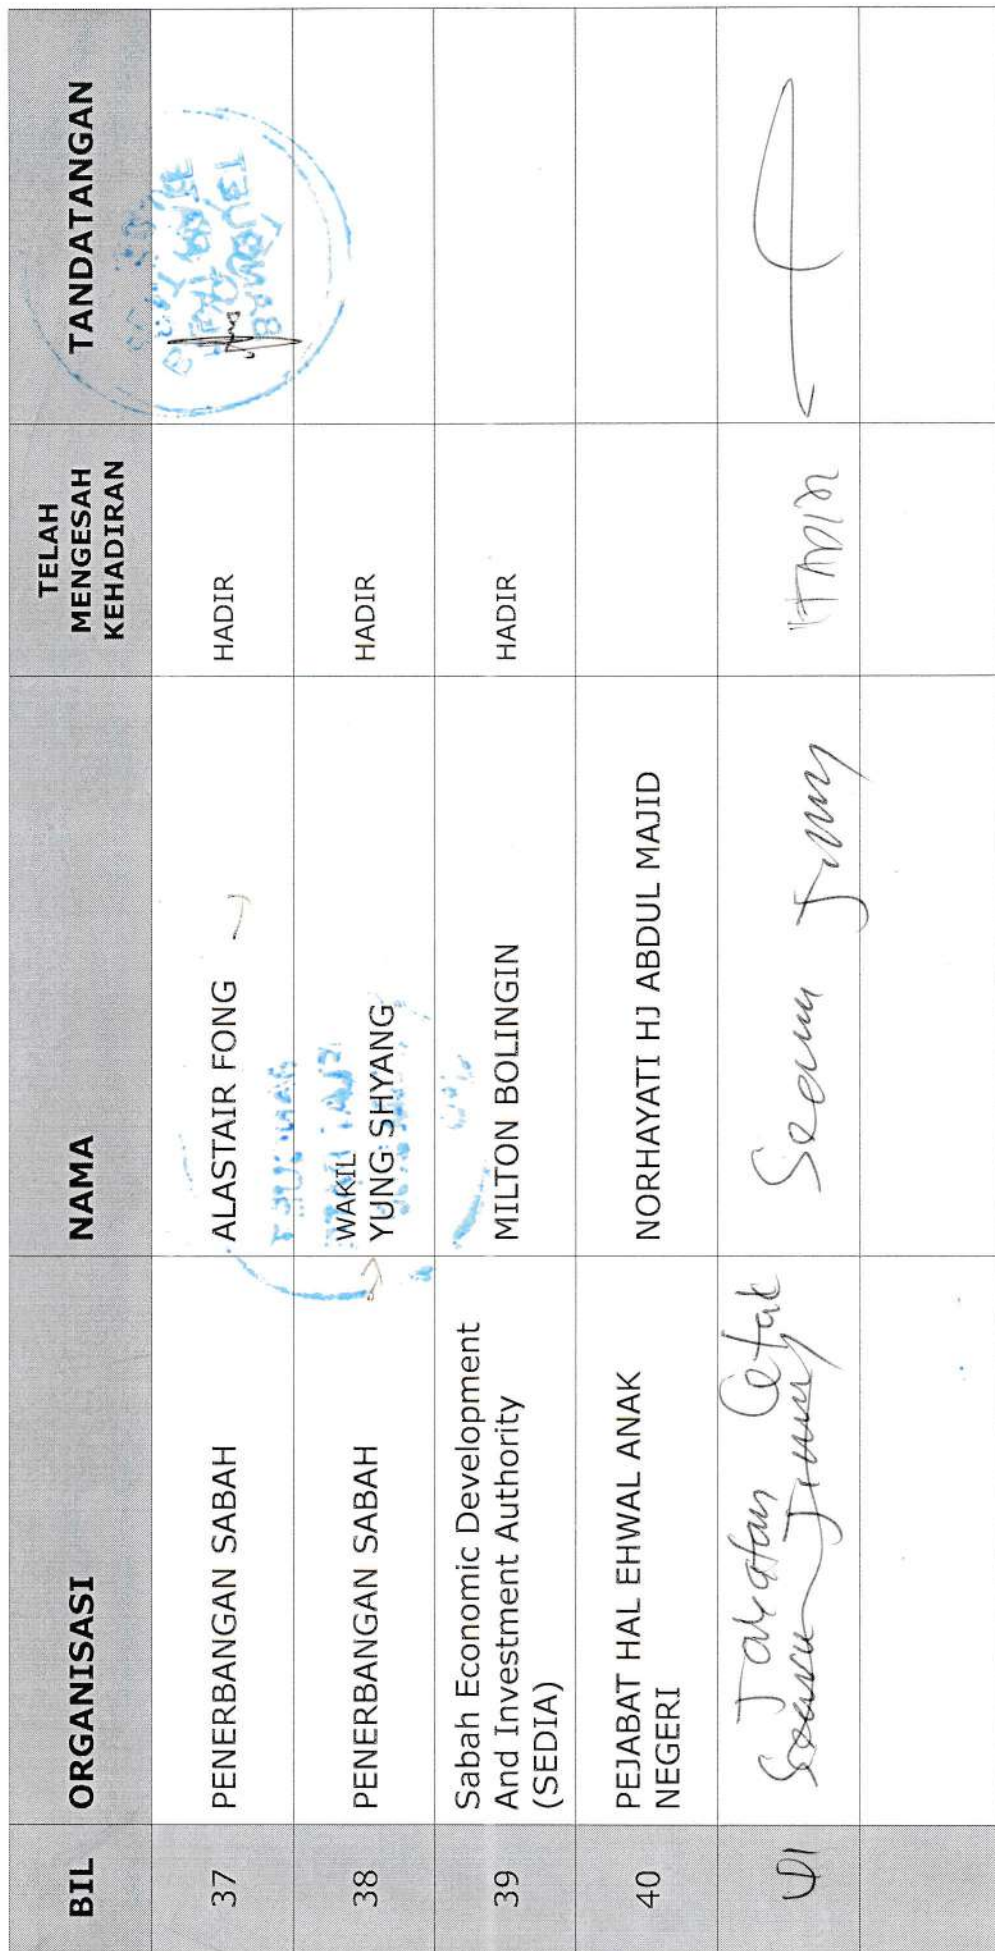 BIL ORGANISASI NAMA TELAH MENGESAH KEHADIRAN TANDATANGAN
37 PENERBANGAN SABAH ALASTAIR FONG HADIR
38 PENERBANGAN SABAH WAKIL YUNG SHYANG HADIR
39 Sabah Economic Development And Investment Authority (SEDIA) MILTON BOLINGIN HADIR
40 PEJABAT HAL EHWAL ANAK NEGERI NORHAYATI HJ ABDUL MAJID
41 Jabatan Cetak HADIR